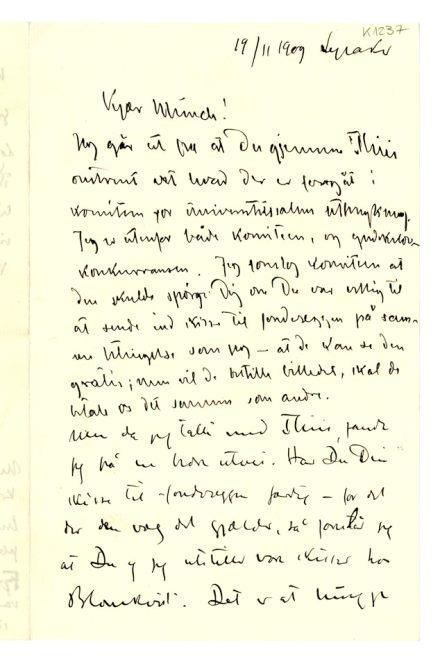 K1237
19/11 1909 Lysaker
Kjær Munch!
Jeg går ut fra at Du gjennem Thiis
omtrent vet hvad der er foregåt i
komitéen for universitetssalens utsmykning.
Jeg er utenfor både komitéen, og
konkurransen. Jeg foreslog komitéen at
den skulde spørge Dig om Du var villig til
at sende ind skisse til fondvæggen på sam-
me betingelse som jeg – at de kan se den
gratis; men vil de bestille billedet, skal de
betale os det samme som andre.
Men da jeg talte med Thiis, fandt
jeg på en bedre utvei. Har Du Din
skisse til fondvæggen færdig – for det
er den væg det gjælder, så foreslår jeg
at Du og jeg utstiller vore skisser hos
Blomkvist. Det er at